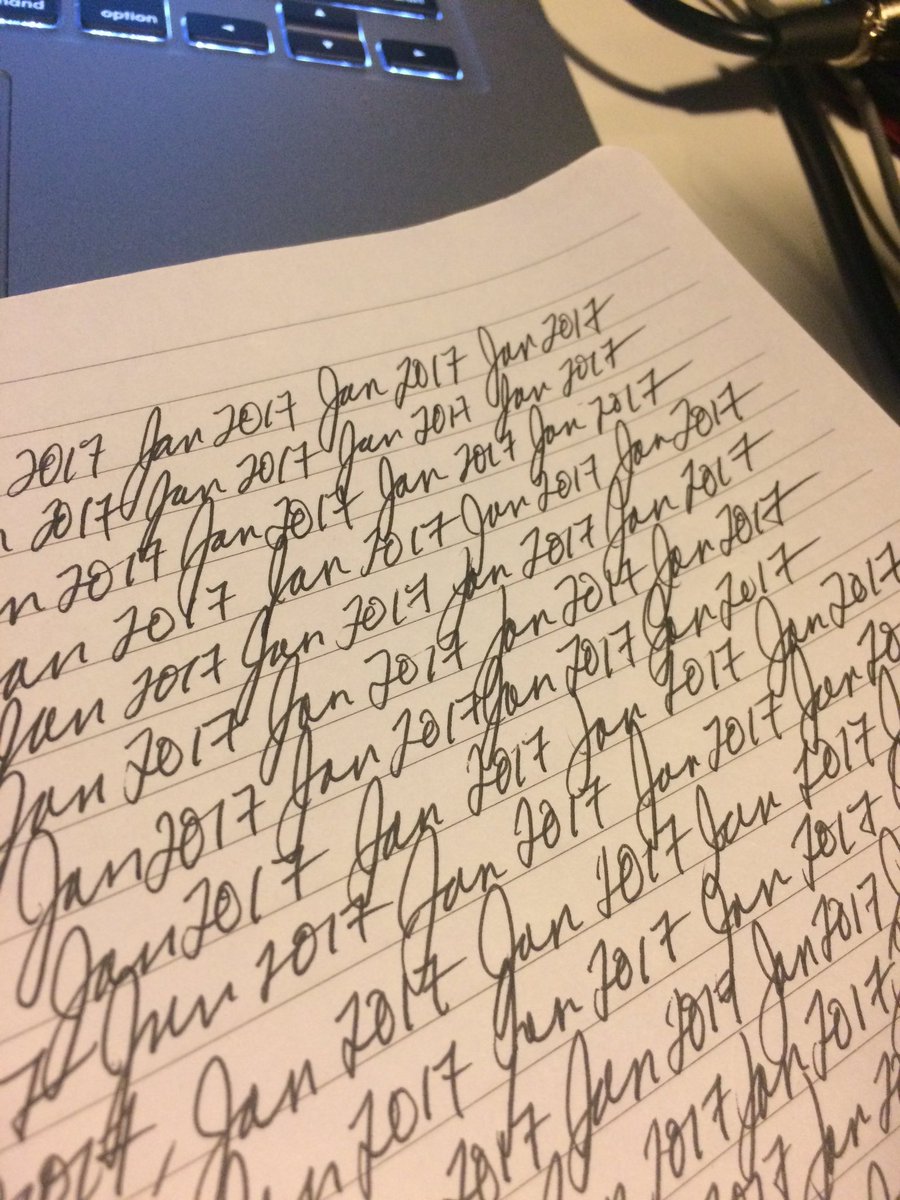 mand option
2017 Jan 2017 Jan 2017 Jan 2017
n 2017 Jan 2017 Jan 2017 Jan 2017
n 2017 Jan 2017 Jan 2017 Jan 2017
an 2017 Jan 2017 Jan 2017 Jan 2017
Jan 2017 Jan 2017 Jan 2017 Jan 2017
Jan 2017 Jan 2017 Jan 2017 Jan 2017
Jan 2017 Jan 2017 Jan 2017 Jan 2017
Jan 2017 Jan 2017 Jan 2017 Jan 2017
7 Jan 2017 Jan 2017 Jan 2017 Jan 20
2017, Jan 2017 Jan 2017 Jan 2017
Jan 2017 Jan 2017 Jan 2017
2017 Jan 2017 Jan 2017
2017 Jan 2017
2017 Jan 2